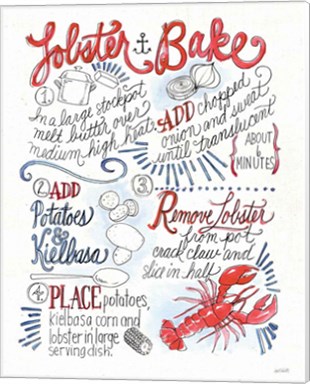 Lobster Bake
1.
In a large stockpot
melt butter over
medium high heat.
ADD chopped
onion and sweat
until translucent
{ABOUT
6
MINUTES}
2. ADD
Potatoes
&
Kielbasa
3.
Remove Lobster
from pot
crack claw and
slice in half
4.
PLACE potatoes,
kielbasa corn and
lobster in large
serving dish.